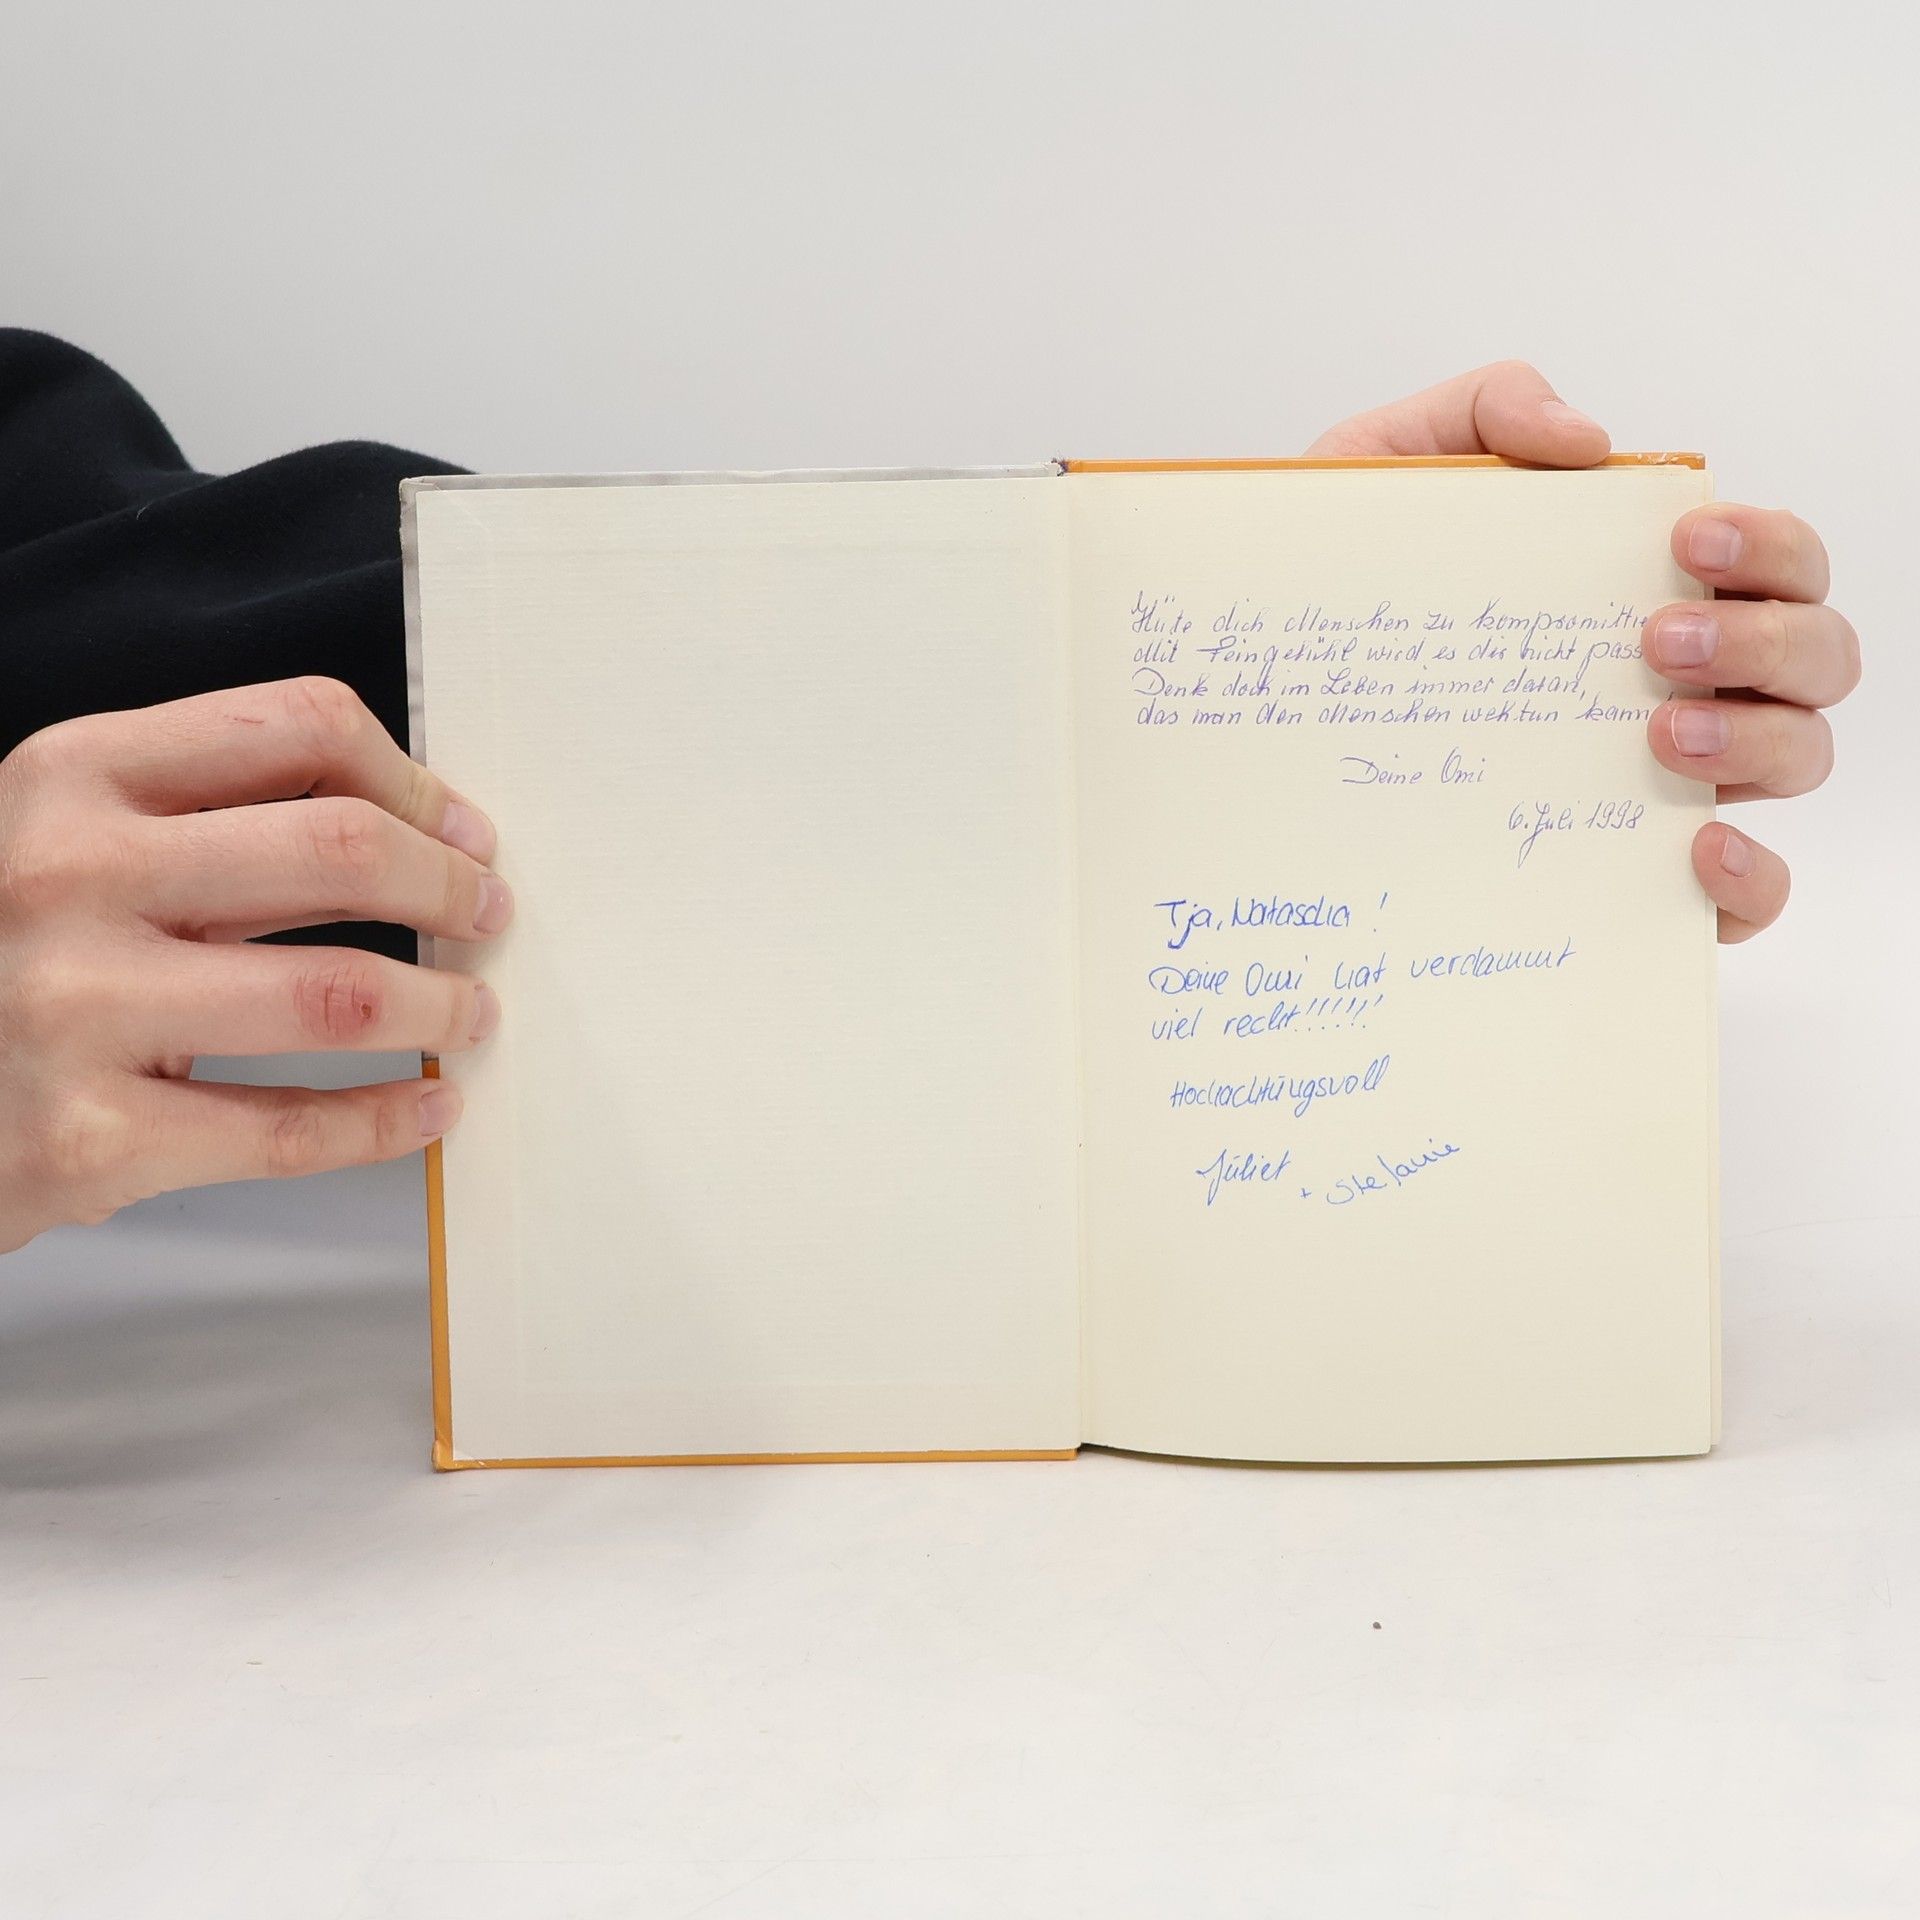 Hüte dich Menschen zu kompromittie
Mit Feingefühl wird es dir nicht pass
Denk doch im Leben immer daran,
das man den Menschen wehtun kann
Deine Omi
6. Juli 1998
Tja, Natascha!
Deine Omi hat verdammt
viel recht!!!!!!
Hochachtungsvoll
Juliet + Stefanie